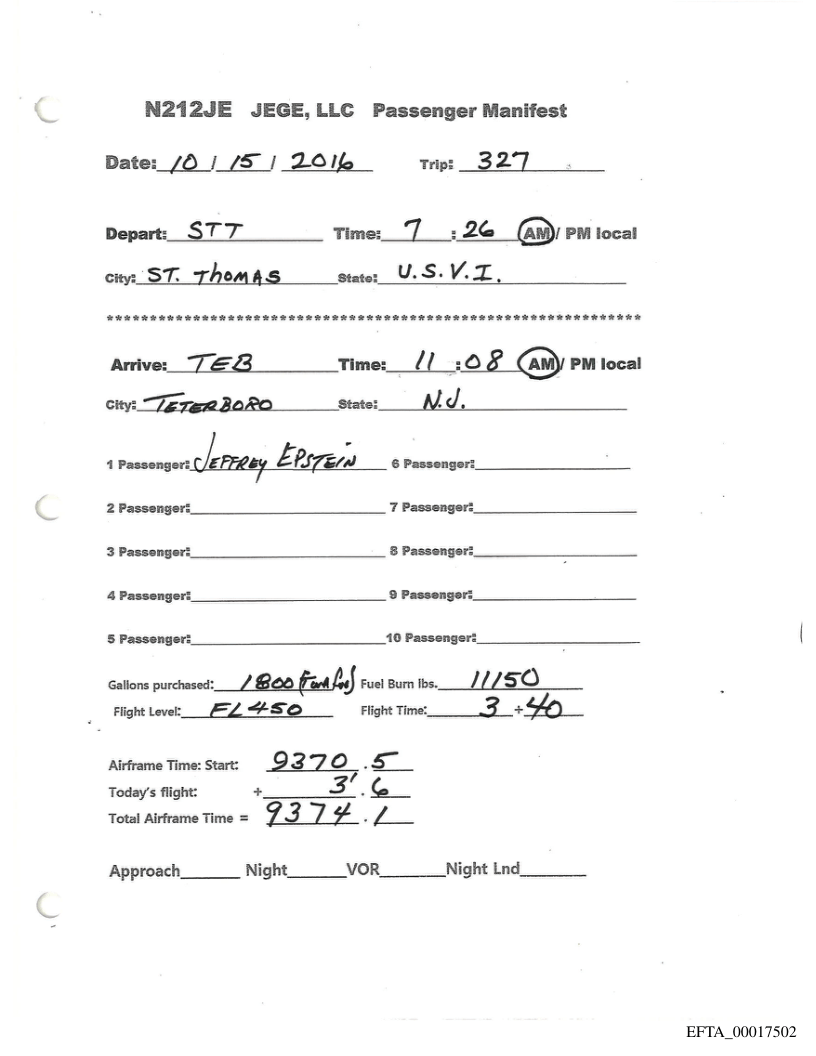 N212JE JEGE, LLC Passenger Manifest
Date: 10 / 15 / 2016 Trip: 327
Depart: STT Time: 7 : 26 AM / PM local
City: ST. ThOMAS State: U.S.V.I.
**************************************************************
Arrive: TEB Time: 11 : 08 AM / PM local
City: TETERBORO State: N.J.
1 Passenger: JEFFREY EPSTEIN 6 Passenger:
2 Passenger: 7 Passenger:
3 Passenger: 8 Passenger:
4 Passenger: 9 Passenger:
5 Passenger: 10 Passenger:
Gallons purchased: 1800 Fuel Burn lbs. 11150
Flight Level: FL450 Flight Time: 3 + 40
Airframe Time: Start: 9370 . 5
Today's flight: + 3 . 6
Total Airframe Time = 9374 . 1
Approach Night VOR Night Lnd
EFTA_00017502